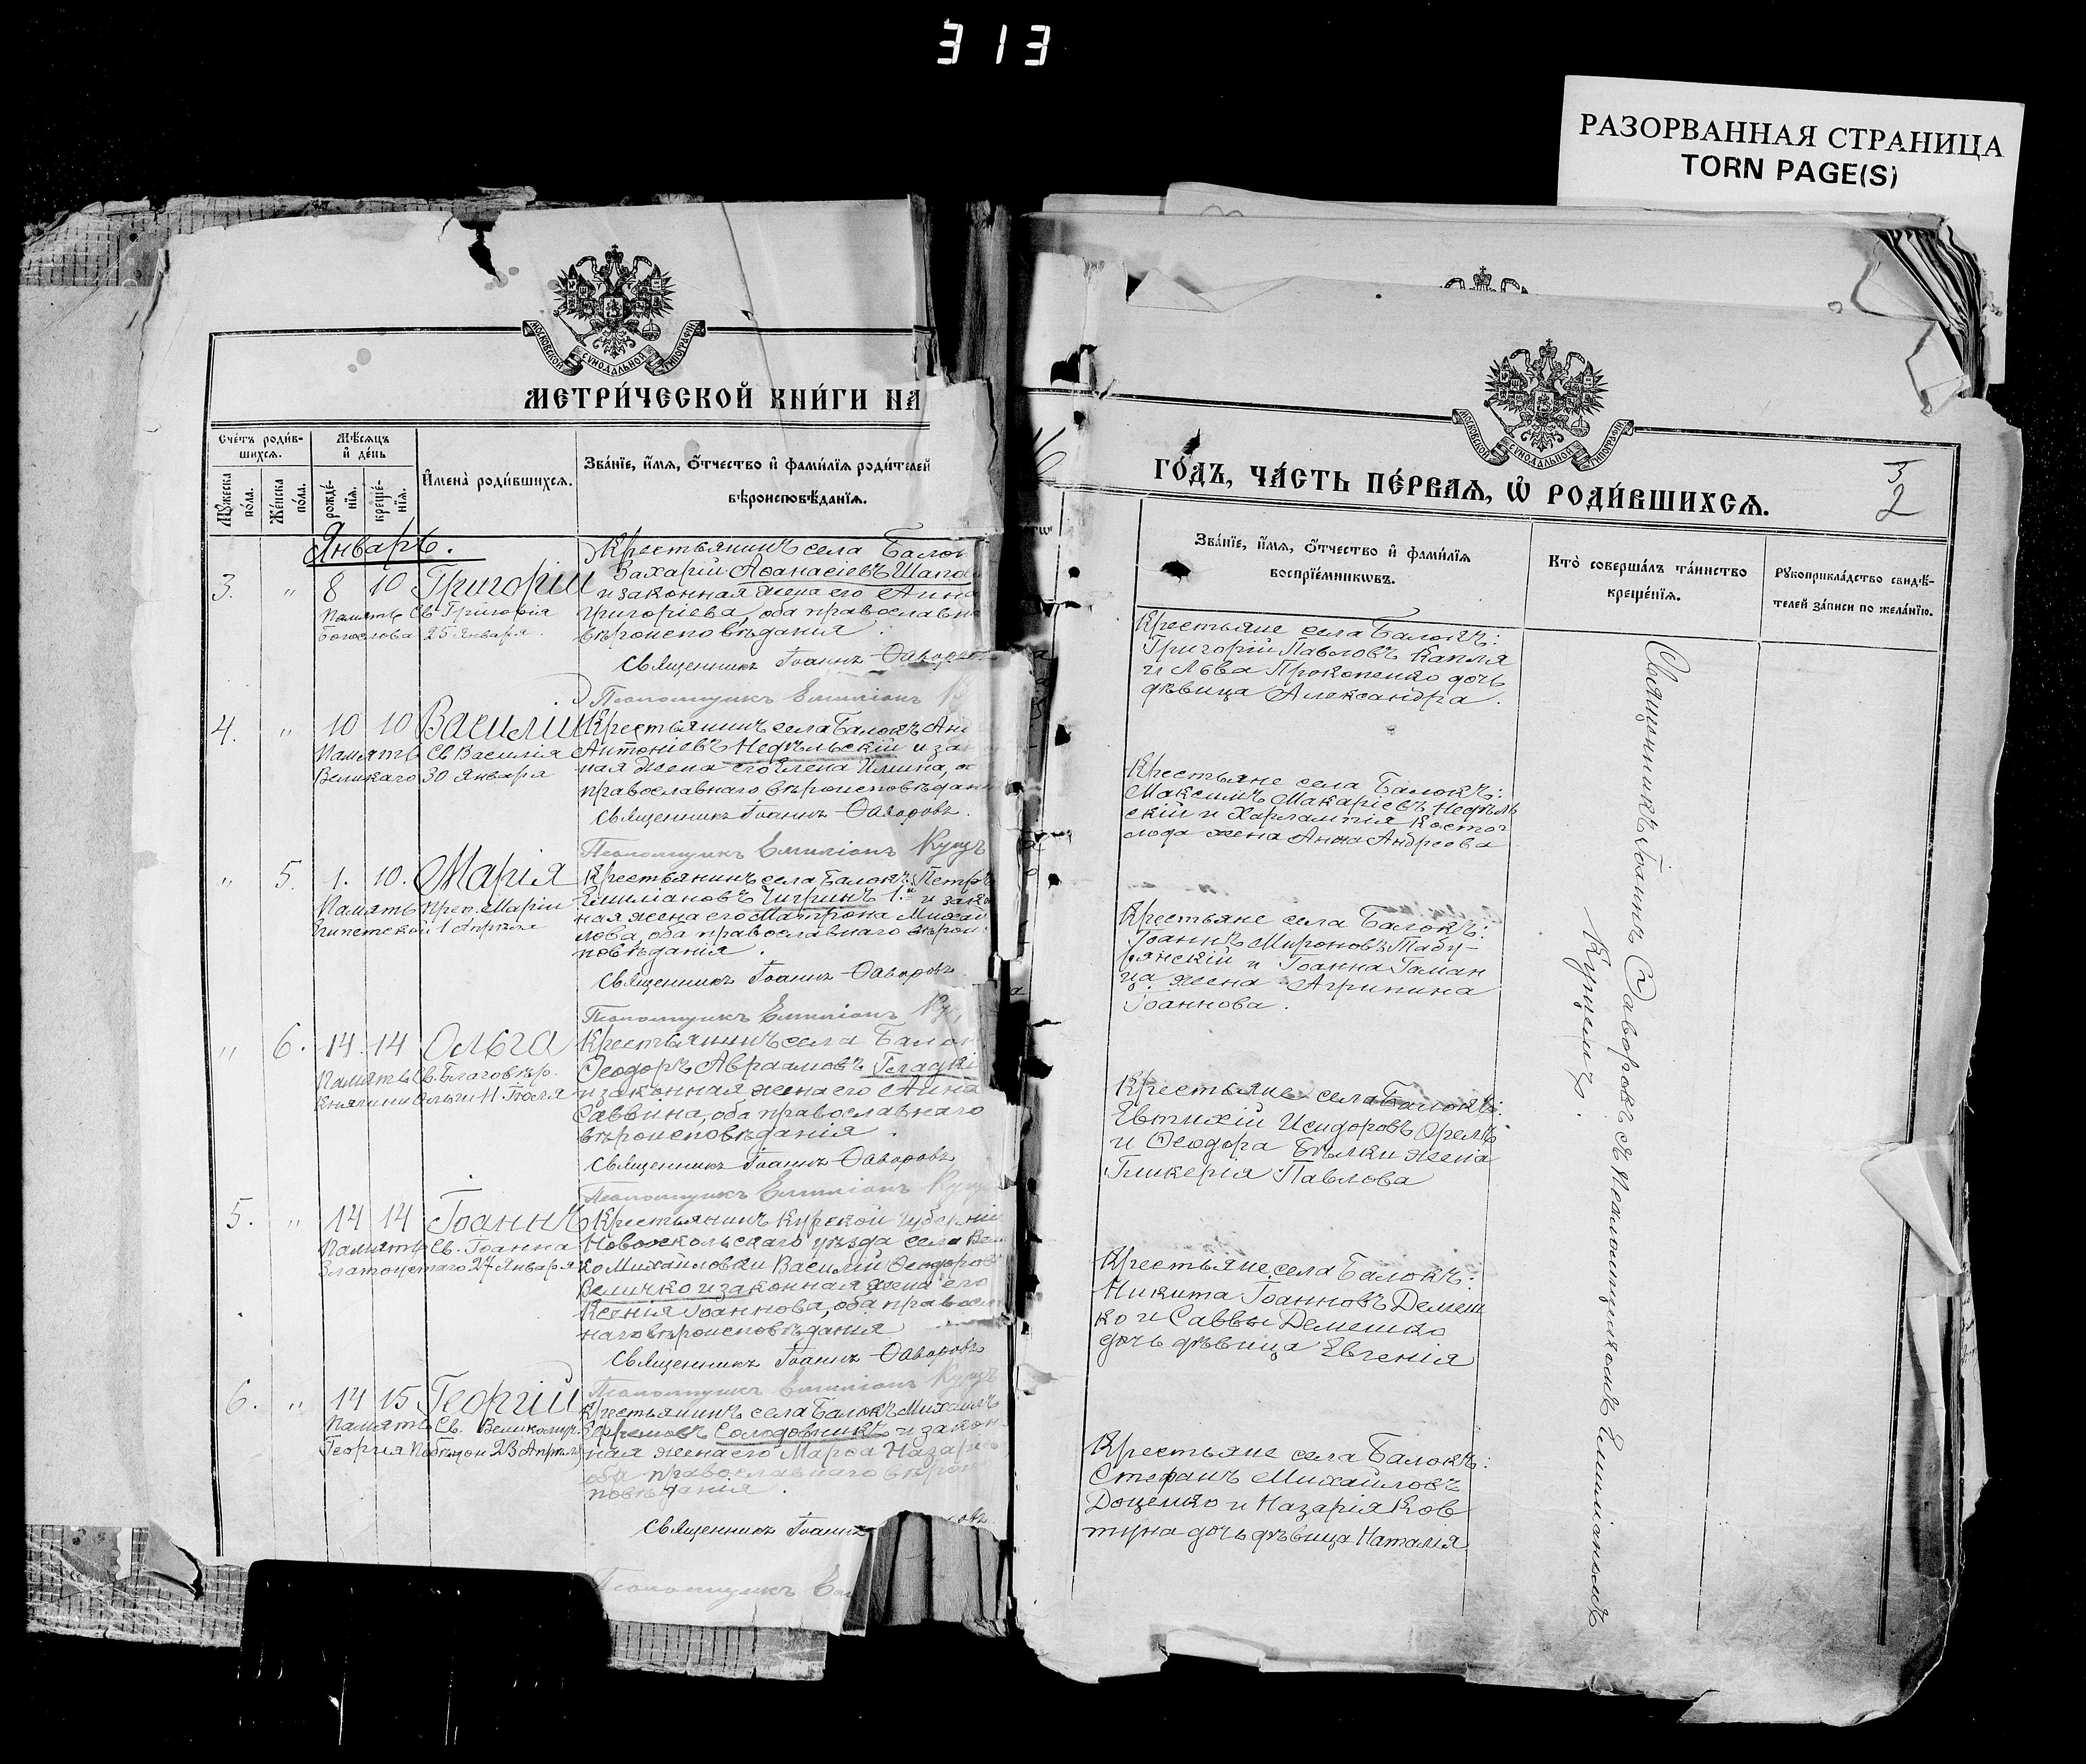 313
РАЗОРВАННАЯ СТРАНИЦА
TORN PAGE(S)
МОСКОВСКОЙ СѴНОДАЛЬНОЙ ТИПОГРАФІИ
МЕТРИ́ЧЕСКОЙ КНИ́ГИ НА
Сче́тъ роди́в-
шихсѧ.
Мѣ́сѧцъ
и҆ де́нь
Мꙋ́жеска
по́ла.
Же́нска
по́ла.
рожде́-
нїѧ.
креще́-
нїѧ.
И҆мена̀ роди́вшихсѧ.
Зва́нїе, и҆́мѧ, ѻ҆́тчество и҆ фами́лїѧ роди́телей
вѣроисповѣ́данїѧ.
Январь.
3. " 8 10 Григорій
Память Св. Григорія
Богослова 25 Января.
Крестьянинъ села Балок
Захарій Аѳанасіевъ Шапо
и законная жена его Анна
Григоріева, оба православна
вѣроисповѣданія.
Священникъ Іоаннъ Фаворов
Псаломщикъ Емиліанъ К
4. " 10 10 Василій
Память Св Василія
Великаго 30 Января
Крестьянинъ села Балокъ Анд
Антоніевъ Недѣльскій и зак
ная жена его Елена Ильина, о
православнаго вѣроисповѣдан
Священникъ Іоаннъ Фаворовъ.
Псаломщикъ Емиліанъ Куцъ
" 5. 1. 10. Марія
Память преп. Маріи
Египетской 1 Апрѣля
Крестьянинъ села Балокъ Петръ
Емиліановъ Чигринъ 1й и зако
ная жена его Матрона Михаи
лова, оба православнаго вѣрои
повѣданія.
Священникъ Іоаннъ Фаворовъ
Псаломщикъ Емиліанъ Ку
" 6. 14 14 Ольга
Память Св. Благовѣр.
Княгини Ольги 11 Іюля
Крестьянинъ села Балок
Ѳеодоръ Авраамовъ Гладкі
и законная жена его Анна
Саввина, оба православнаго
вѣроисповѣданія.
Священникъ Іоаннъ Фаворовъ
Псаломщикъ Емиліанъ Куц
5. " 14 14 Іоаннъ
Память Св. Іоанна
Златоустаго 27 Января
Крестьянинъ Курской Губерніи
Новооскольскаго уѣзда села Вел
ко Михайловки Василій Ѳеодоров
Величко и законная жена его
Ксенія Іоаннова, оба правосл
наго вѣроисповѣданія
Священникъ Іоаннъ Фаворовъ
Псаломщикъ Емиліанъ Куцъ
6. " 14 15 Георгій
Память Св. Великомуч.
Георгія Побѣдон 23 Апрѣля
Крестьянинъ села Балокъ Михаилъ
Ефремовъ Солодовникъ и закон
ная жена его Марѳа Назаріев
оба православнаго вѣрои
повѣданія.
Священникъ Іоаннъ
овъ
Псаломщикъ Ем
МОСКОВСКОЙ СѴНОДАЛЬНОЙ ТИПОГРАФІИ
ГО́ДЪ, ЧА́СТЬ ПЕ́РВАѦ, Ѡ҆ РОДИ́ВШИХСѦ.
3
2
Зва́нїе, и҆́мѧ, ѻ҆́тчество и҆ фами́лїѧ
воспрїе́мникѡвъ.
Кто̀ соверша́лъ та́инство
креще́нїѧ.
Рꙋкоприкла́дство свидѣ́-
телей за́писи по жела́нїю.
Крестьяне села Балокъ:
Григорій Павловъ Капля
и Льва Прокопенко дочь
дѣвица Александра.
Крестьяне села Балокъ:
Максимъ Макаріевъ Недѣль
скій и Харлампія Косто
лода жена Анна Андреева
Крестьяне села Балокъ:
Іоаннъ Мироновъ Табу-
рянскій и Іоанна Гаман
ца жена Агрипина
Іоаннова.
Крестьяне села Балокъ:
Евтихій Исидоровъ Орелъ
и Ѳеодора Бѣлки жена
Гликерія Павлова
Крестьяне села Балокъ:
Никита Іоанновъ Демеш
ко и Саввы Демешко
дочь дѣвица Евгенія
Крестьяне села Балокъ:
Стефанъ Михайловъ
Доценко и Назарія Ков
туна дочь дѣвица Наталія
Священникъ Іоаннъ Фаворовъ съ Псаломщикомъ Емиліаномъ
Куцемъ.